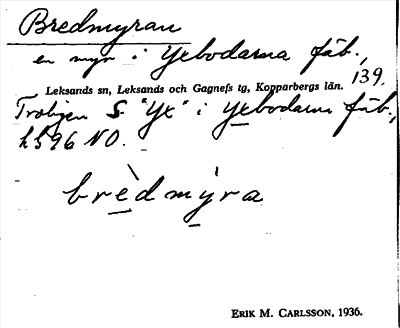 Bredmyran
en myr i Yxbodarna fäb.,
139.
Leksands sn, Leksands och Gagnefs tg, Kopparbergs län.
Troligen S "Yx" i Yxbodarna fäb.,
h 596 NO.
brèdmỳra
ERIK M. CARLSSON, 1936.